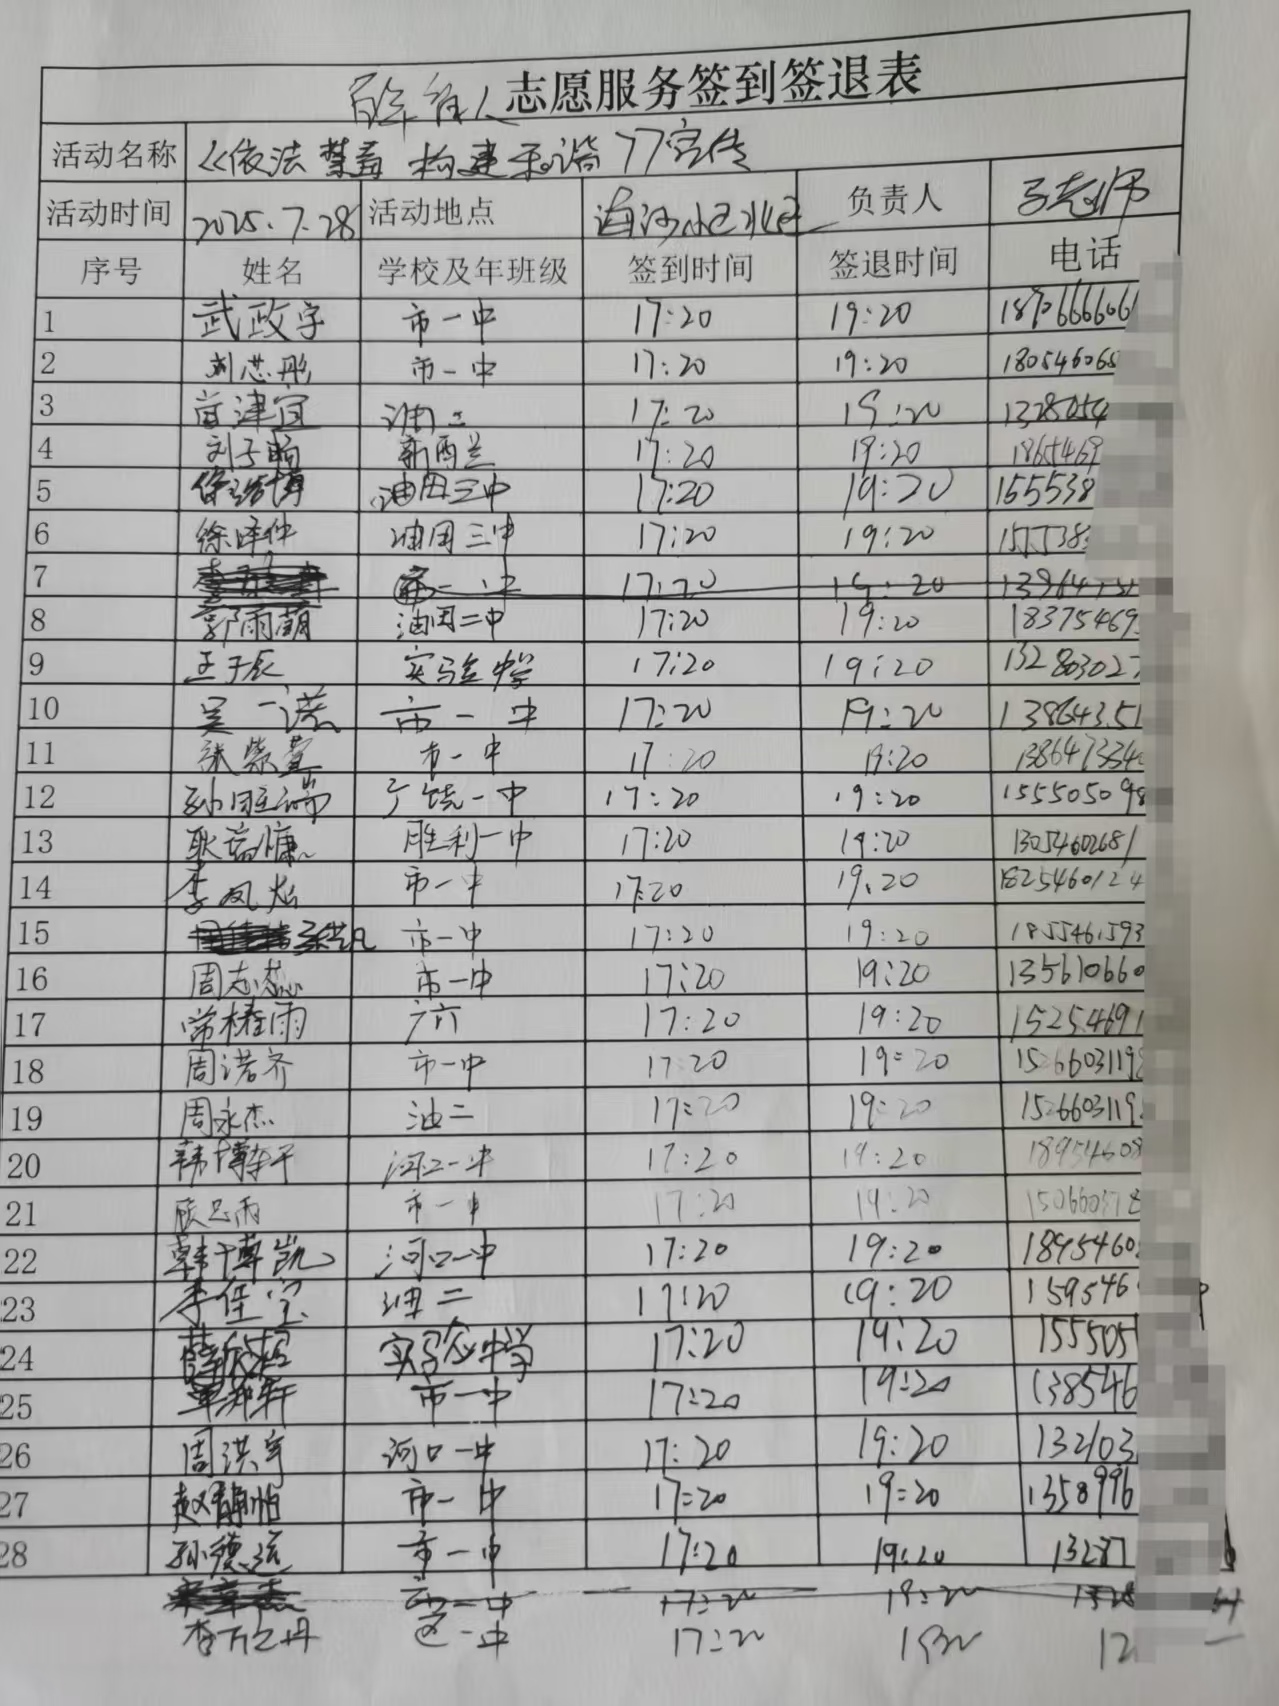 志愿服务签到签退表
活动名称 《依法禁毒 构建和谐》宣传
活动时间 2025.7.28 活动地点 负责人 马老师
序号 姓名 学校及年班级 签到时间 签退时间 电话
1 武政宇 市一中 17:20 19:20
2 刘芯彤 市一中 17:20 19:20 180546068
3 苗津宜 油二 17:20 19:20 1328054
4 新西兰 17:20 19:20 1865469
5 油田三中 17:20 19:20 155538
6 徐泽仲 油田三中 17:20 19:20 155538
7 17:20 19:20 13964
8 郭雨萌 油田二中 17:20 19:20 18375469
9 王于辰 实验中学 17:20 19:20 132803027
10 吴一诺 市一中 17:20 19:20 13864351
11 张紫萱 市一中 17:20 19:20 1386473340
12 广饶一中 17:20 19:20 155505098
13 耿瑞慷 胜利一中 17:20 19:20 1305460268
14 李凤灿 市一中 17:20 19:20 1825460124
15 市一中 17:20 19:20 1855461593
16 周志蕊 市一中 17:20 19:20 135610660
17 常椿雨 17:20 19:20 15254691
18 周诺齐 市一中 17:20 19:20 1526603119
19 周永杰 油二 17:20 19:20 1526603119
20 韩博轩 河口一中 17:20 19:20 18954608
21 顾思雨 市一中 17:20 19:20
22 韩博凯 河口一中 17:20 19:20 18954608
23 李佳宝 油二 17:20 19:20 159546
24 实验中学 17:20 19:20 155505
25 市一中 17:20 19:20 138546
26 周洪宇 河口一中 17:20 19:20 132103
27 赵静怡 市一中 17:20 19:20 1358996
28 孙德远 市一中 17:20 19:20 13287
17:20 19:20
一中 17:20